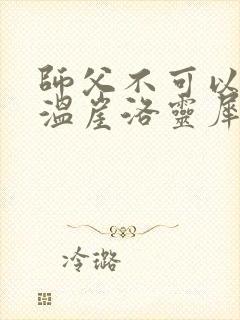 師父不可以
溫崖洛靈犀
冷璐